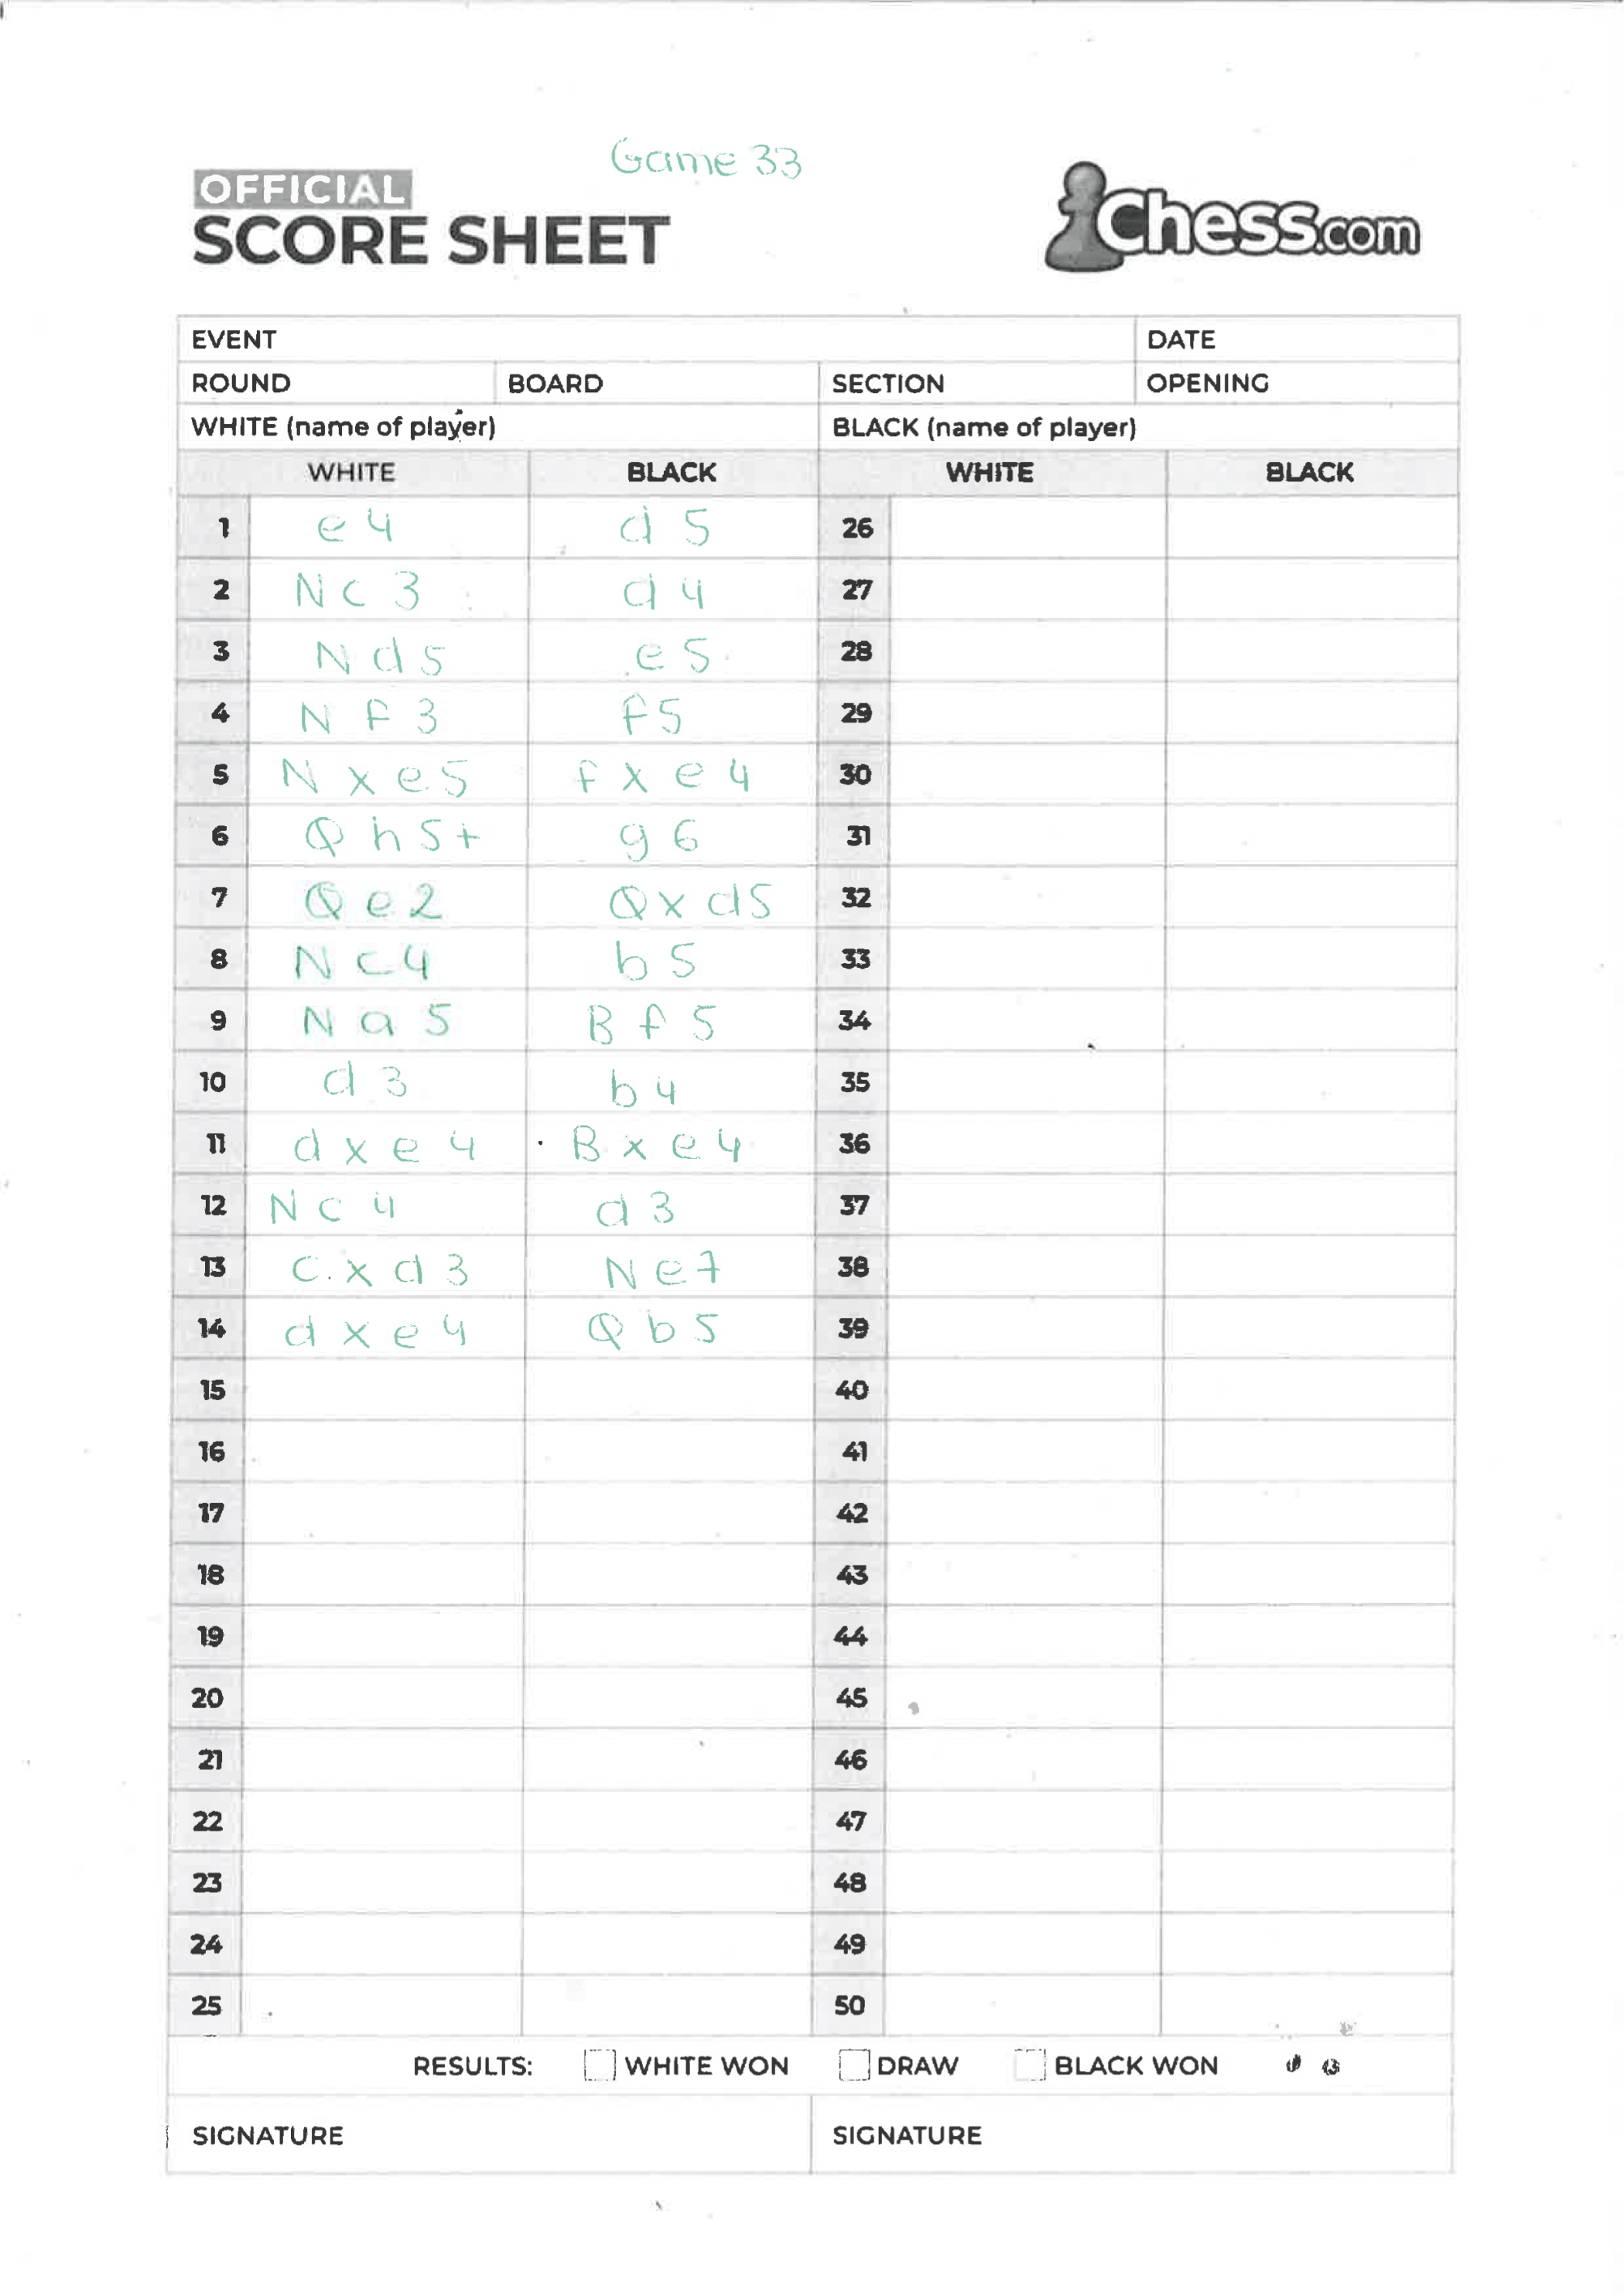 Game 33
OFFICIAL
SCORE SHEET
Chess.com
EVENT DATE
ROUND BOARD SECTION OPENING
WHITE (name of player) BLACK (name of player)
WHITE BLACK WHITE BLACK
1 e4 d5 26
2 Nc3 d4 27
3 Nd5 e5 28
4 NF3 F5 29
5 Nxe5 fxe4 30
6 Qh5+ g6 31
7 Qe2 Qxd5 32
8 Nc4 b5 33
9 Na5 Bf5 34
10 d3 b4 35
11 dxe4 Bxe4 36
12 Nc4 d3 37
13 c.xd3 Ne7 38
14 dxe4 Qb5 39
15 40
16 41
17 42
18 43
19 44
20 45
21 46
22 47
23 48
24 49
25 50
RESULTS: WHITE WON DRAW BLACK WON
SIGNATURE SIGNATURE